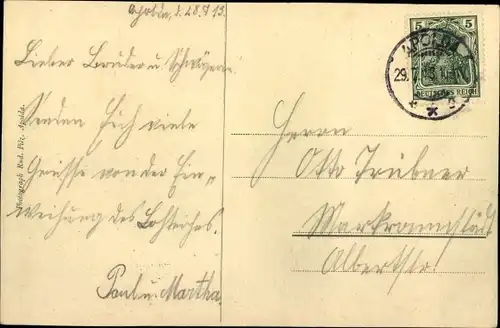 Apolda, d. 28.7.13.
Lieber Bruder u. Schwägerin
Senden Euch viele
Grüsse von der Ein„
weihung des Lohteiches.
Paul u. Martha
Photograph Rud. Pilz, Apolda.
5 5
DEUTSCHES REICH
APOLDA
29.7.13.
Herrn
Otto Trübner
Markranstädt
Albertstr.